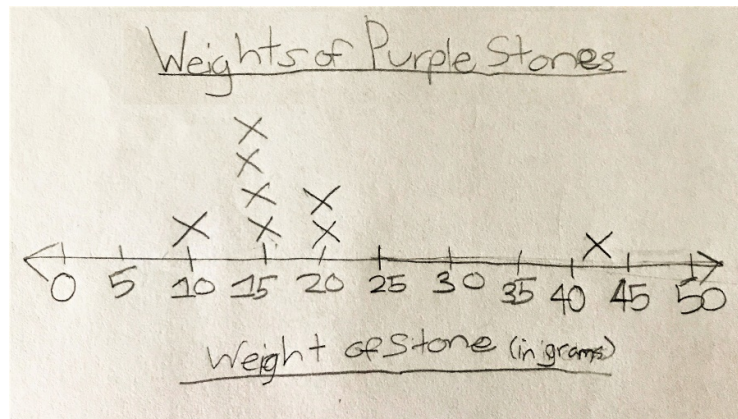 Weights of Purple Stones
0 5 10 15 20 25 30 35 40 45 50
Weight of Stone (in grams)